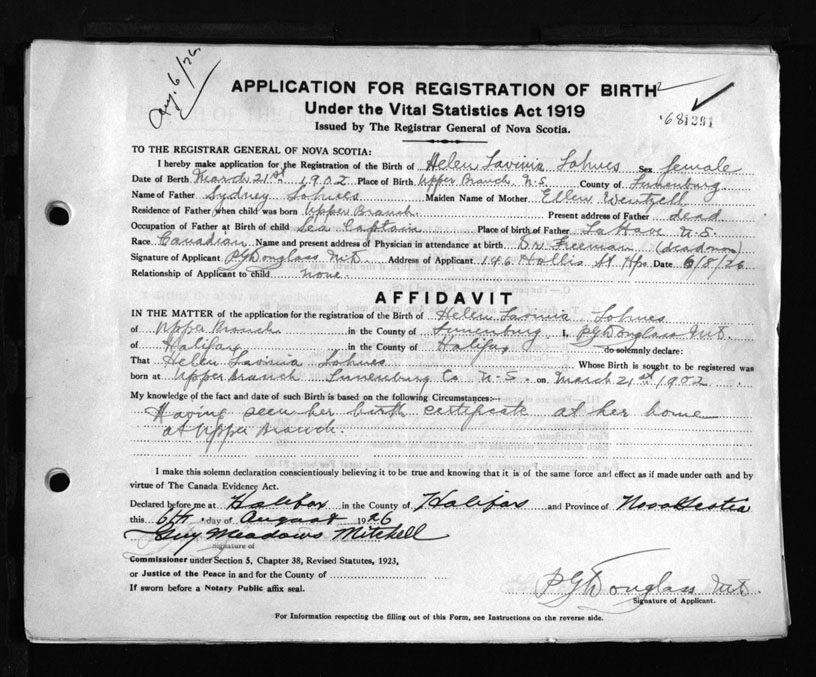 Aug. 6/26
APPLICATION FOR REGISTRATION OF BIRTH
Under the Vital Statistics Act 1919
681291
Issued by The Registrar General of Nova Scotia.
TO THE REGISTRAR GENERAL OF NOVA SCOTIA:
I hereby make application for the Registration of the Birth of Helen Lavinia Lohnes Sex female
Date of Birth March 21st 1902 Place of Birth Upper Branch N.S. County of Lunenburg
Name of Father Sydney Lohnes Maiden Name of Mother Ellen Wentzell
Residence of Father when child was born Upper Branch Present address of Father dead
Occupation of Father at Birth of child Sea Captain Place of birth of Father LaHave N.S.
Race Canadian Name and present address of Physician in attendance at birth Dr Freeman (dead now)
Signature of Applicant Douglass M.D. Address of Applicant 146 Hollis St Hfx Date 6/8/26
Relationship of Applicant to child none.
AFFIDAVIT
IN THE MATTER of the application for the registration of the Birth of Helen Lavinia Lohnes
of Upper Branch in the County of Lunenburg, I, Douglass M.D.
of Halifax in the County of Halifax do solemnly declare:
That Helen Lavinia Lohnes Whose Birth is sought to be registered was
born at Upper Branch Lunenburg Co N.S. on March 21st 1902
My knowledge of the fact and date of such Birth is based on the following Circumstances:—
Having seen her birth certificate at her home
at Upper Branch.
I make this solemn declaration conscientiously believing it to be true and knowing that it is of the same force and effect as if made under oath and by
virtue of The Canada Evidence Act.
Declared before me at Halifax in the County of Halifax and Province of Nova Scotia
this 6th day of August 1926
Guy Meadows Mitchell
Signature of
Commissioner under Section 5, Chapter 38, Revised Statutes, 1923,
or Justice of the Peace in and for the County of
If sworn before a Notary Public affix seal.
Douglass M.D.
Signature of Applicant.
For Information respecting the filling out of this Form, see Instructions on the reverse side.